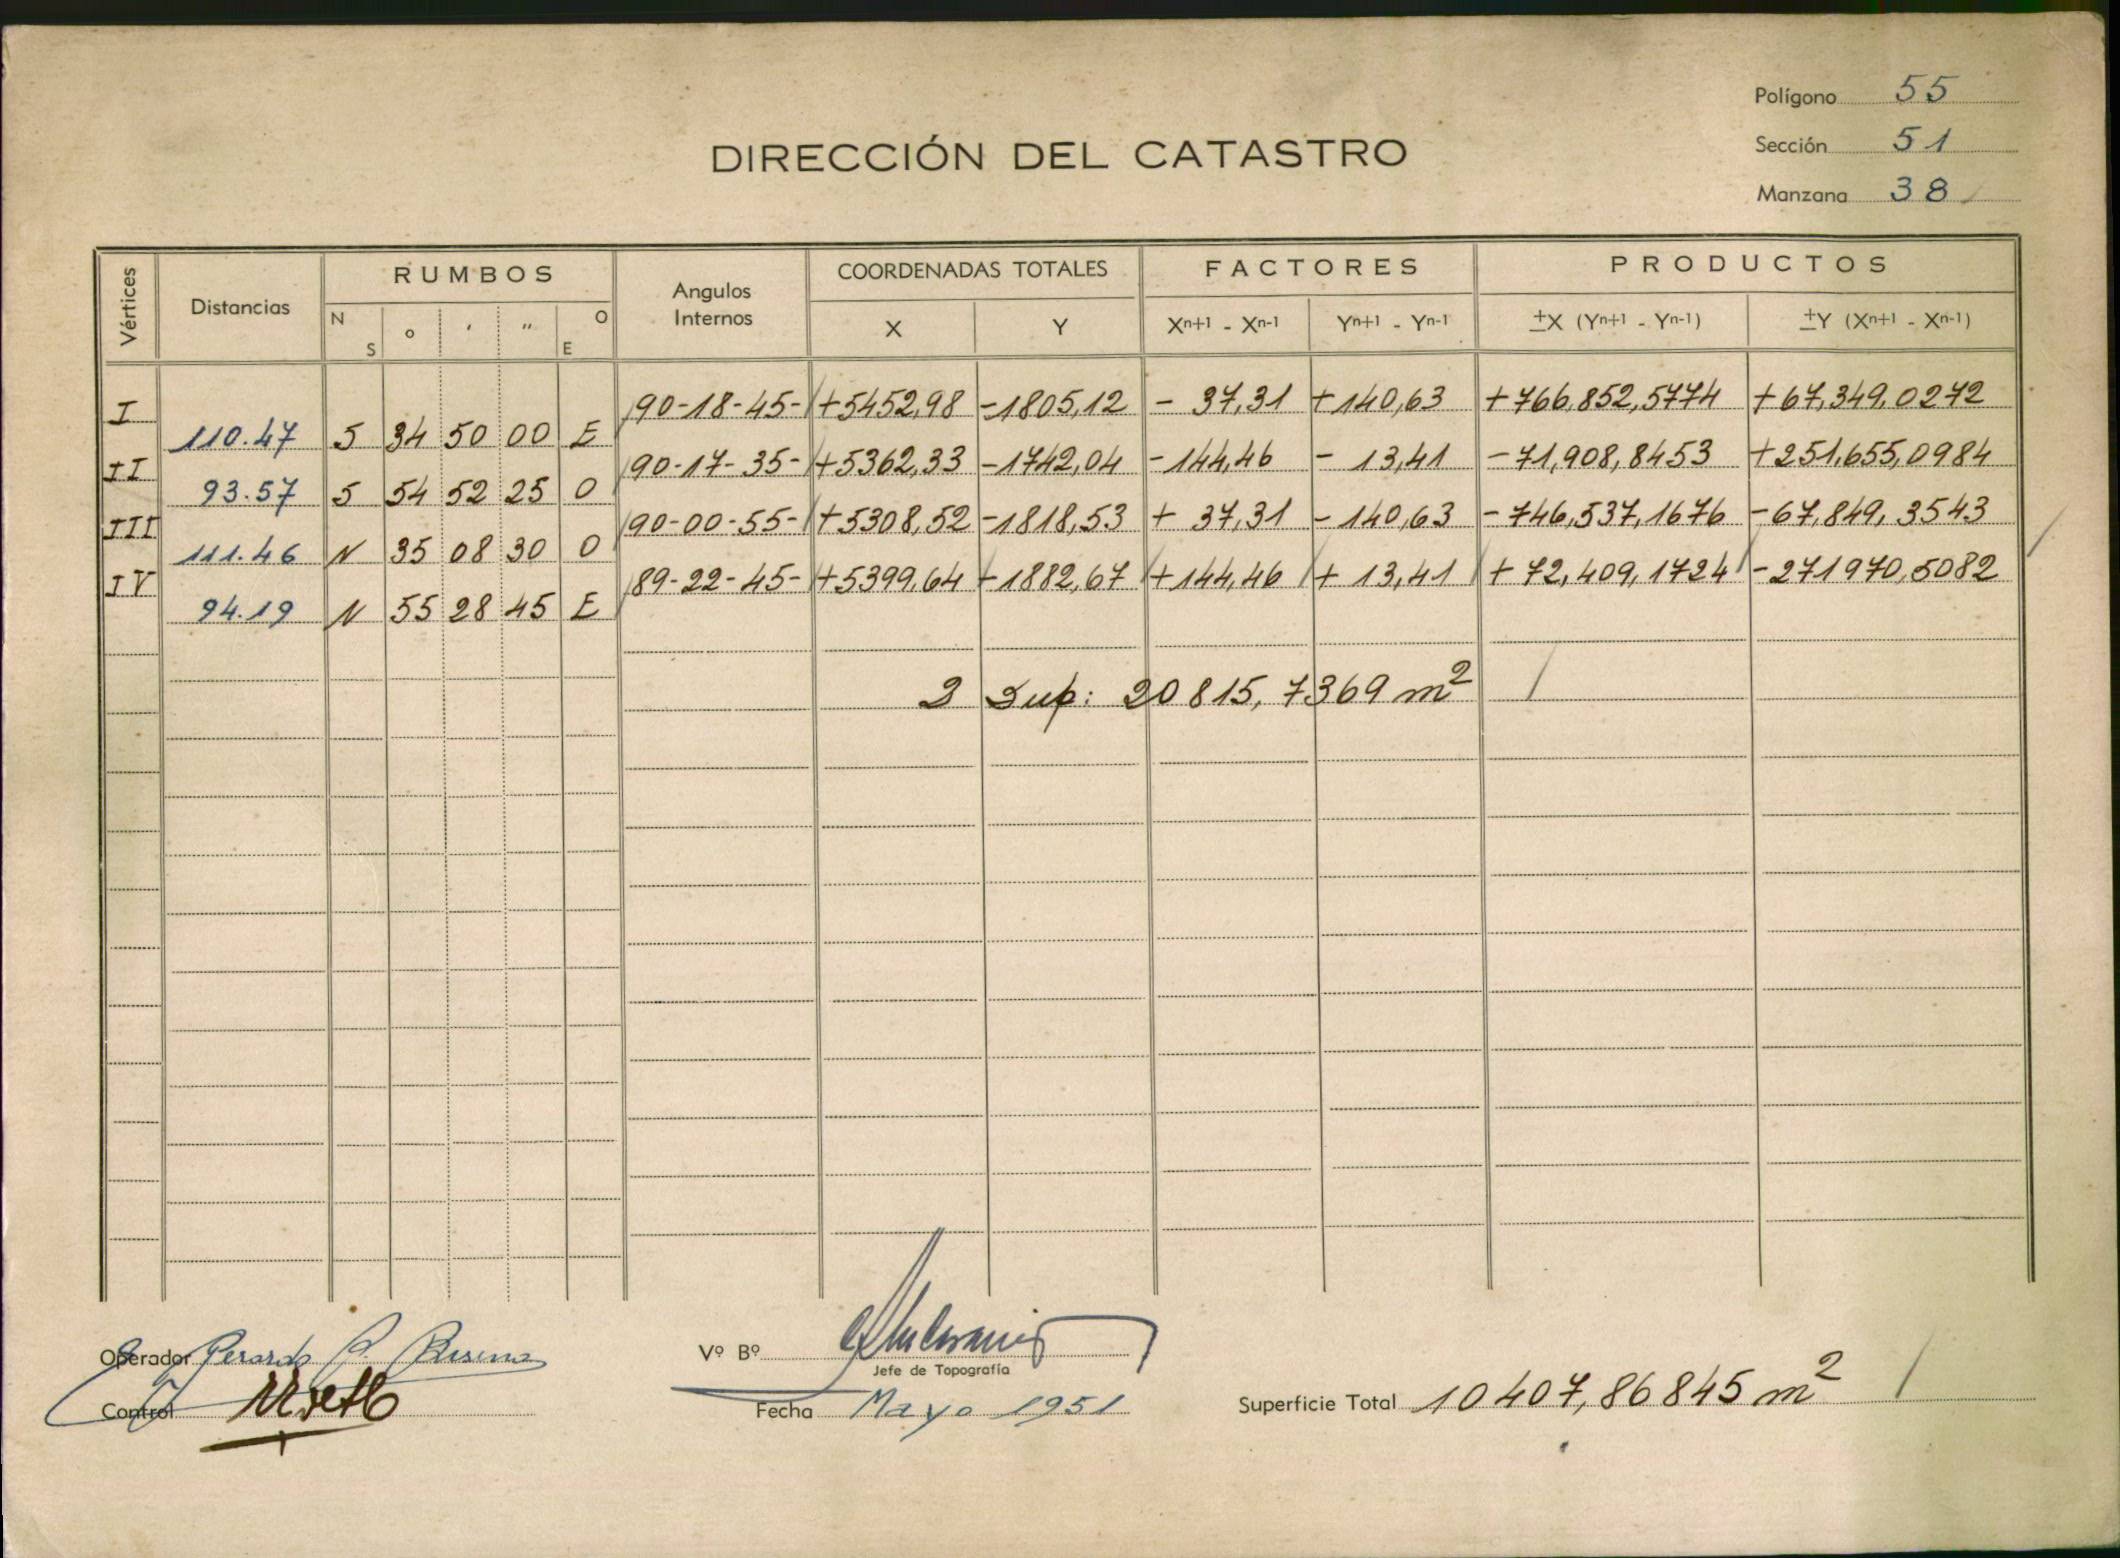 Polígono 55
DIRECCIÓN DEL CATASTRO
Sección 51
Manzana 38
Vértices Distancias RUMBOS Angulos Internos COORDENADAS TOTALES FACTORES PRODUCTOS
N S ° ′ ″ O E X Y Xn+1 - Xn-1 Yn+1 - Yn-1 ±X (Yn+1 - Yn-1) ±Y (Xn+1 - Xn-1)
I 90-18-45- +5452,98 -1805,12 - 37,31 +140,63 +766,852,5774 +67,349,0272
110.47 S 34 50 00 E
II 90-17-35- +5362,33 -1742,04 -144,46 - 13,41 -71,908,8453 +251,655,0984
93.57 S 54 52 25 O
III 90-00-55- +5308,52 -1818,53 + 37,31 -140,63 -746,537,1676 -67,849,3543
111.46 N 35 08 30 O
IV 89-22-45- +5399,64 -1882,67 +144,46 + 13,41 +72,409,1724 -271970,5082
94.19 N 55 28 45 E
2 Sup: 20815,7369 m²
Operador Gerardo
Vº Bº
Jefe de Topografía
Control
Fecha Mayo 1951
Superficie Total 10407,86845 m²